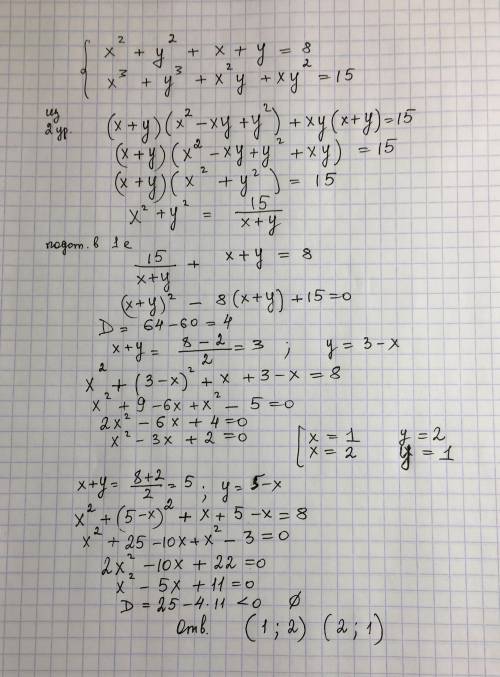 { x² + y² + x + y = 8
x³ + y³ + x²y + xy² = 15
из
2 ур. (x+y)(x² - xy + y²) + xy(x+y) = 15
(x+y)(x² - xy + y² + xy) = 15
(x+y)(x² + y²) = 15
x² + y² = 15/(x+y)
подст. в 1 е
15/(x+y) + x+y = 8
(x+y)² - 8(x+y) + 15 = 0
D = 64 - 60 = 4
x+y = (8-2)/2 = 3 ; y = 3 - x
x² + (3-x)² + x + 3 - x = 8
x² + 9 - 6x + x² - 5 = 0
2x² - 6x + 4 = 0
x² - 3x + 2 = 0 [ x = 1 y = 2
x = 2 y = 1
x+y = (8+2)/2 = 5 ; y = 5 - x
x² + (5-x)² + x + 5 - x = 8
x² + 25 - 10x + x² - 3 = 0
2x² - 10x + 22 = 0
x² - 5x + 11 = 0
D = 25 - 4·11 < 0 ∅
Отв. (1 ; 2) (2 ; 1)